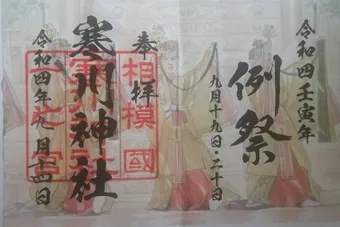 令和四壬寅年
例祭
九月十九日・二十日
奉拝
相模國
一之宮
寒川神社
令和四年九月十四日